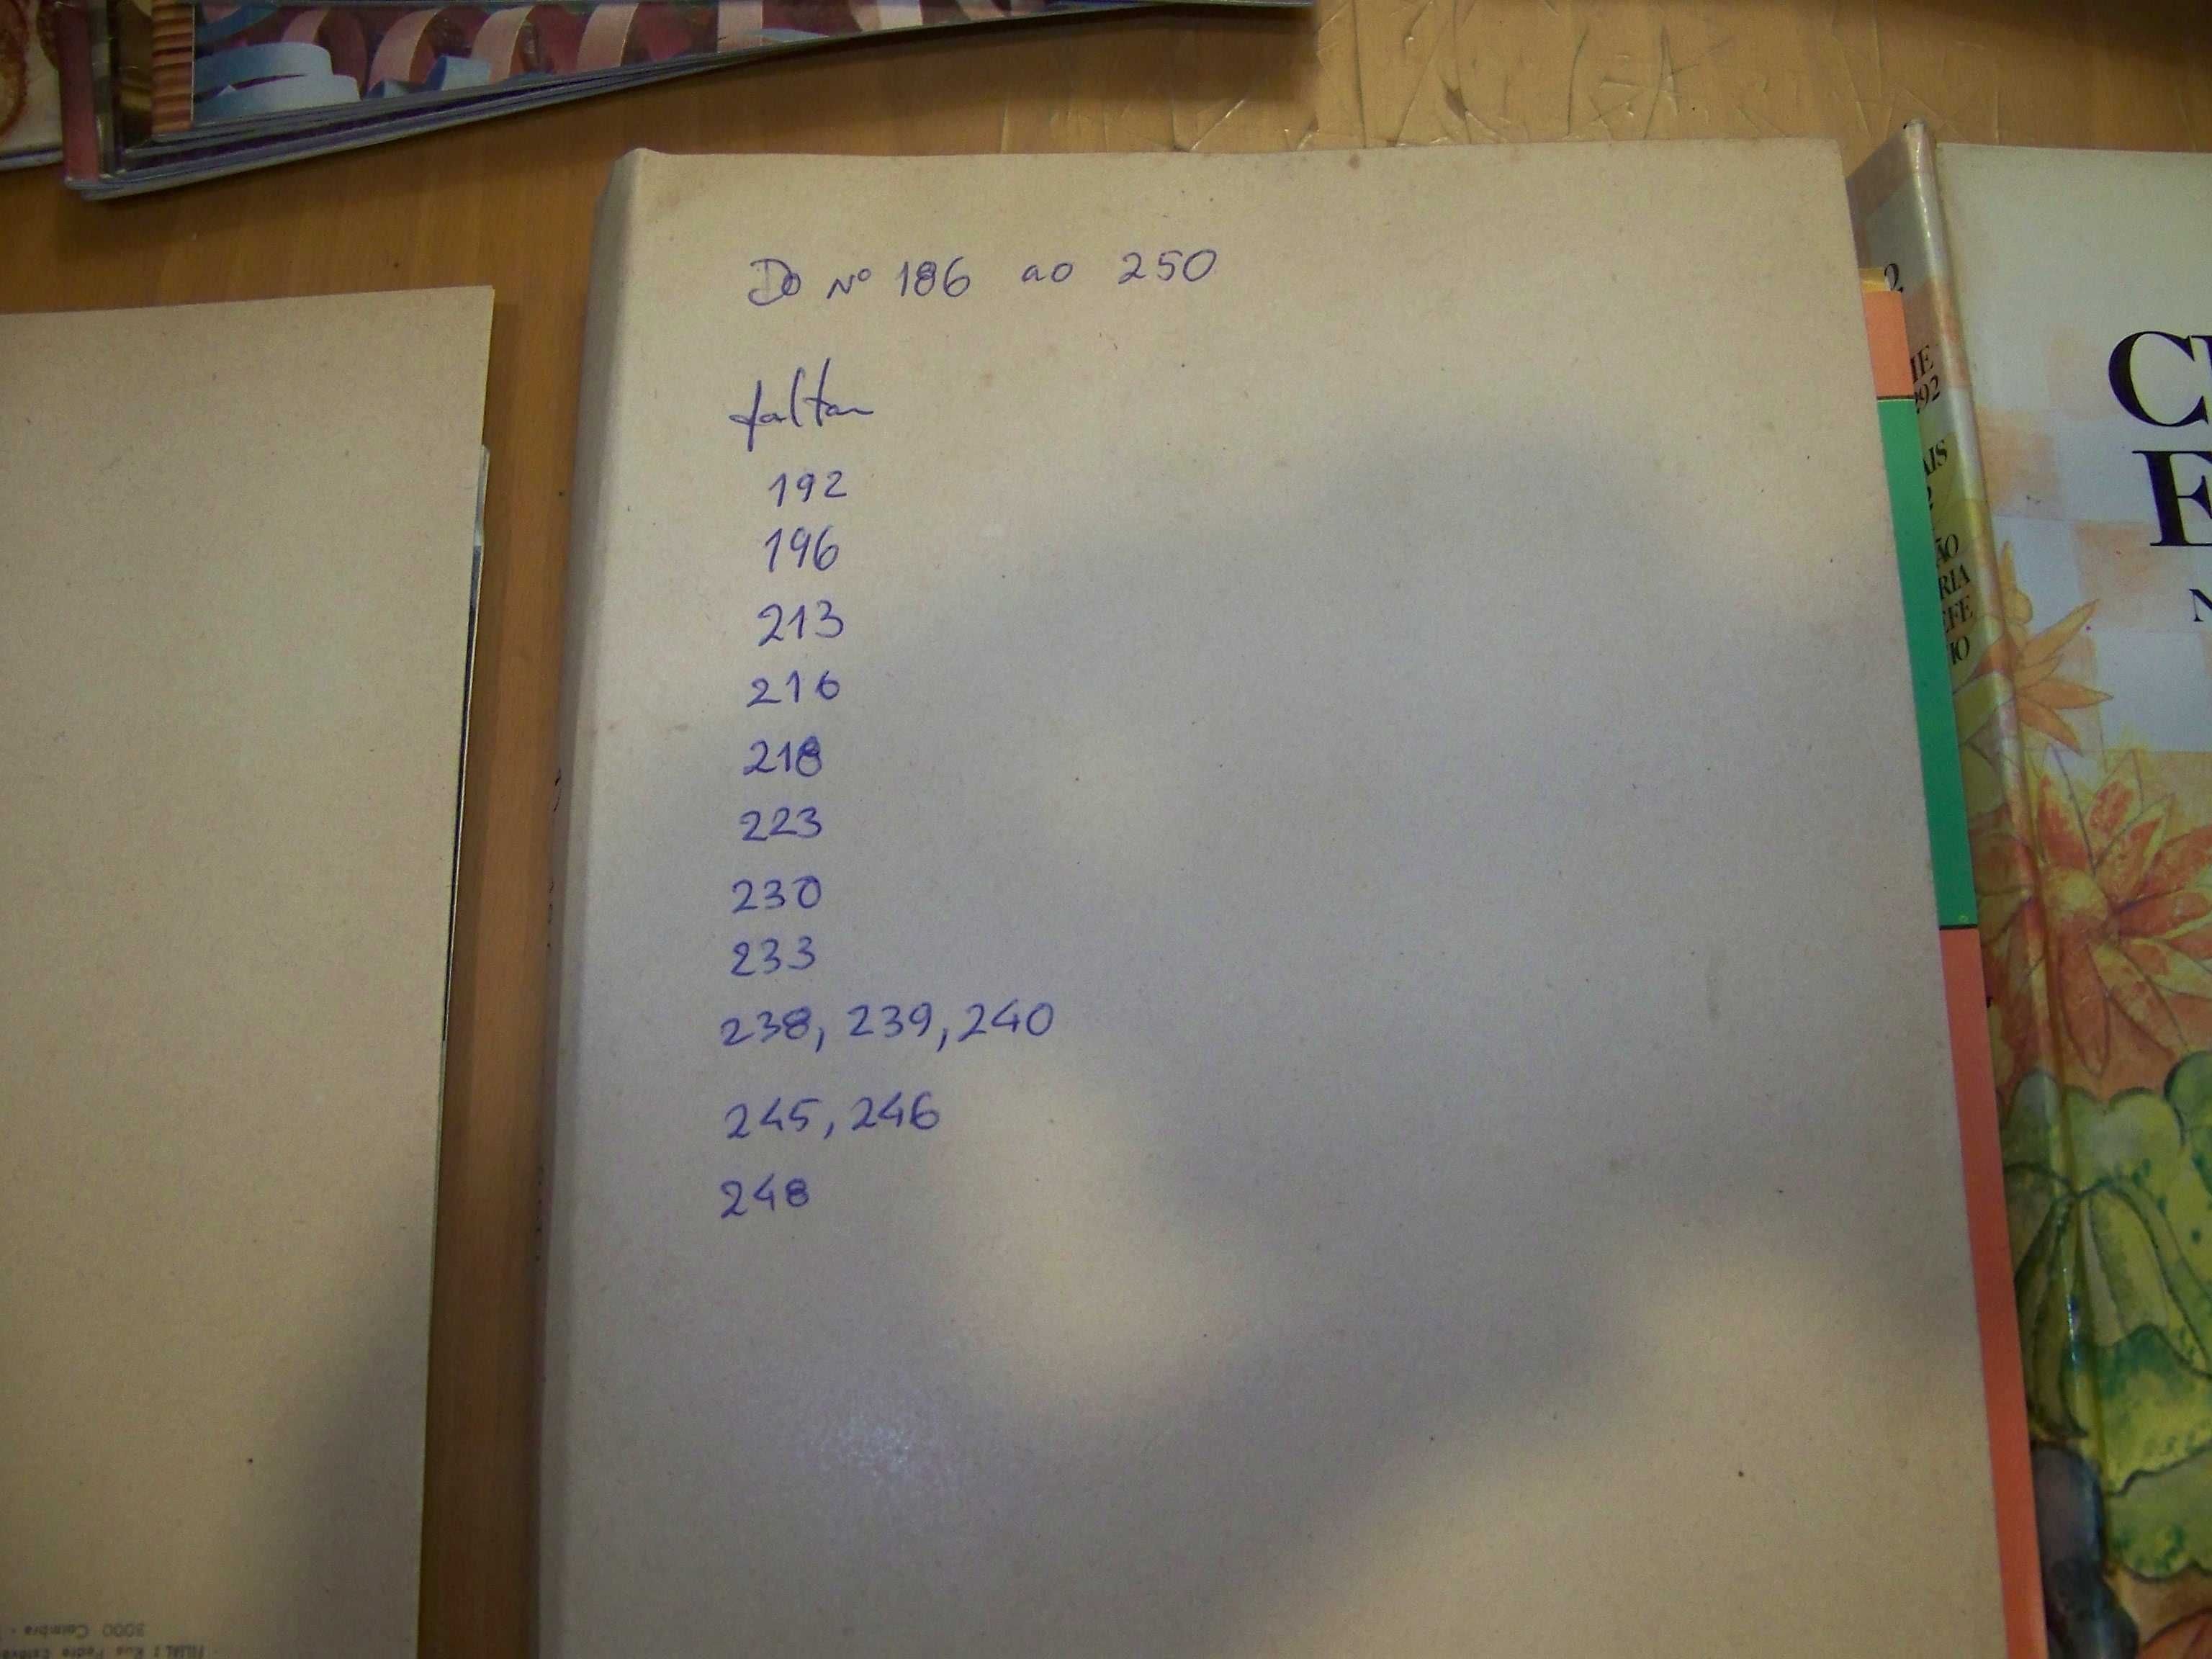 Do Nº 186 ao 250
faltam
192
196
213
216
218
223
230
233
238, 239, 240
245, 246
248
2
92
AIS
ÃO
RIA
EFE
IO
C
E
N
3000 Coimbra
FILIAL: Rua Pedro